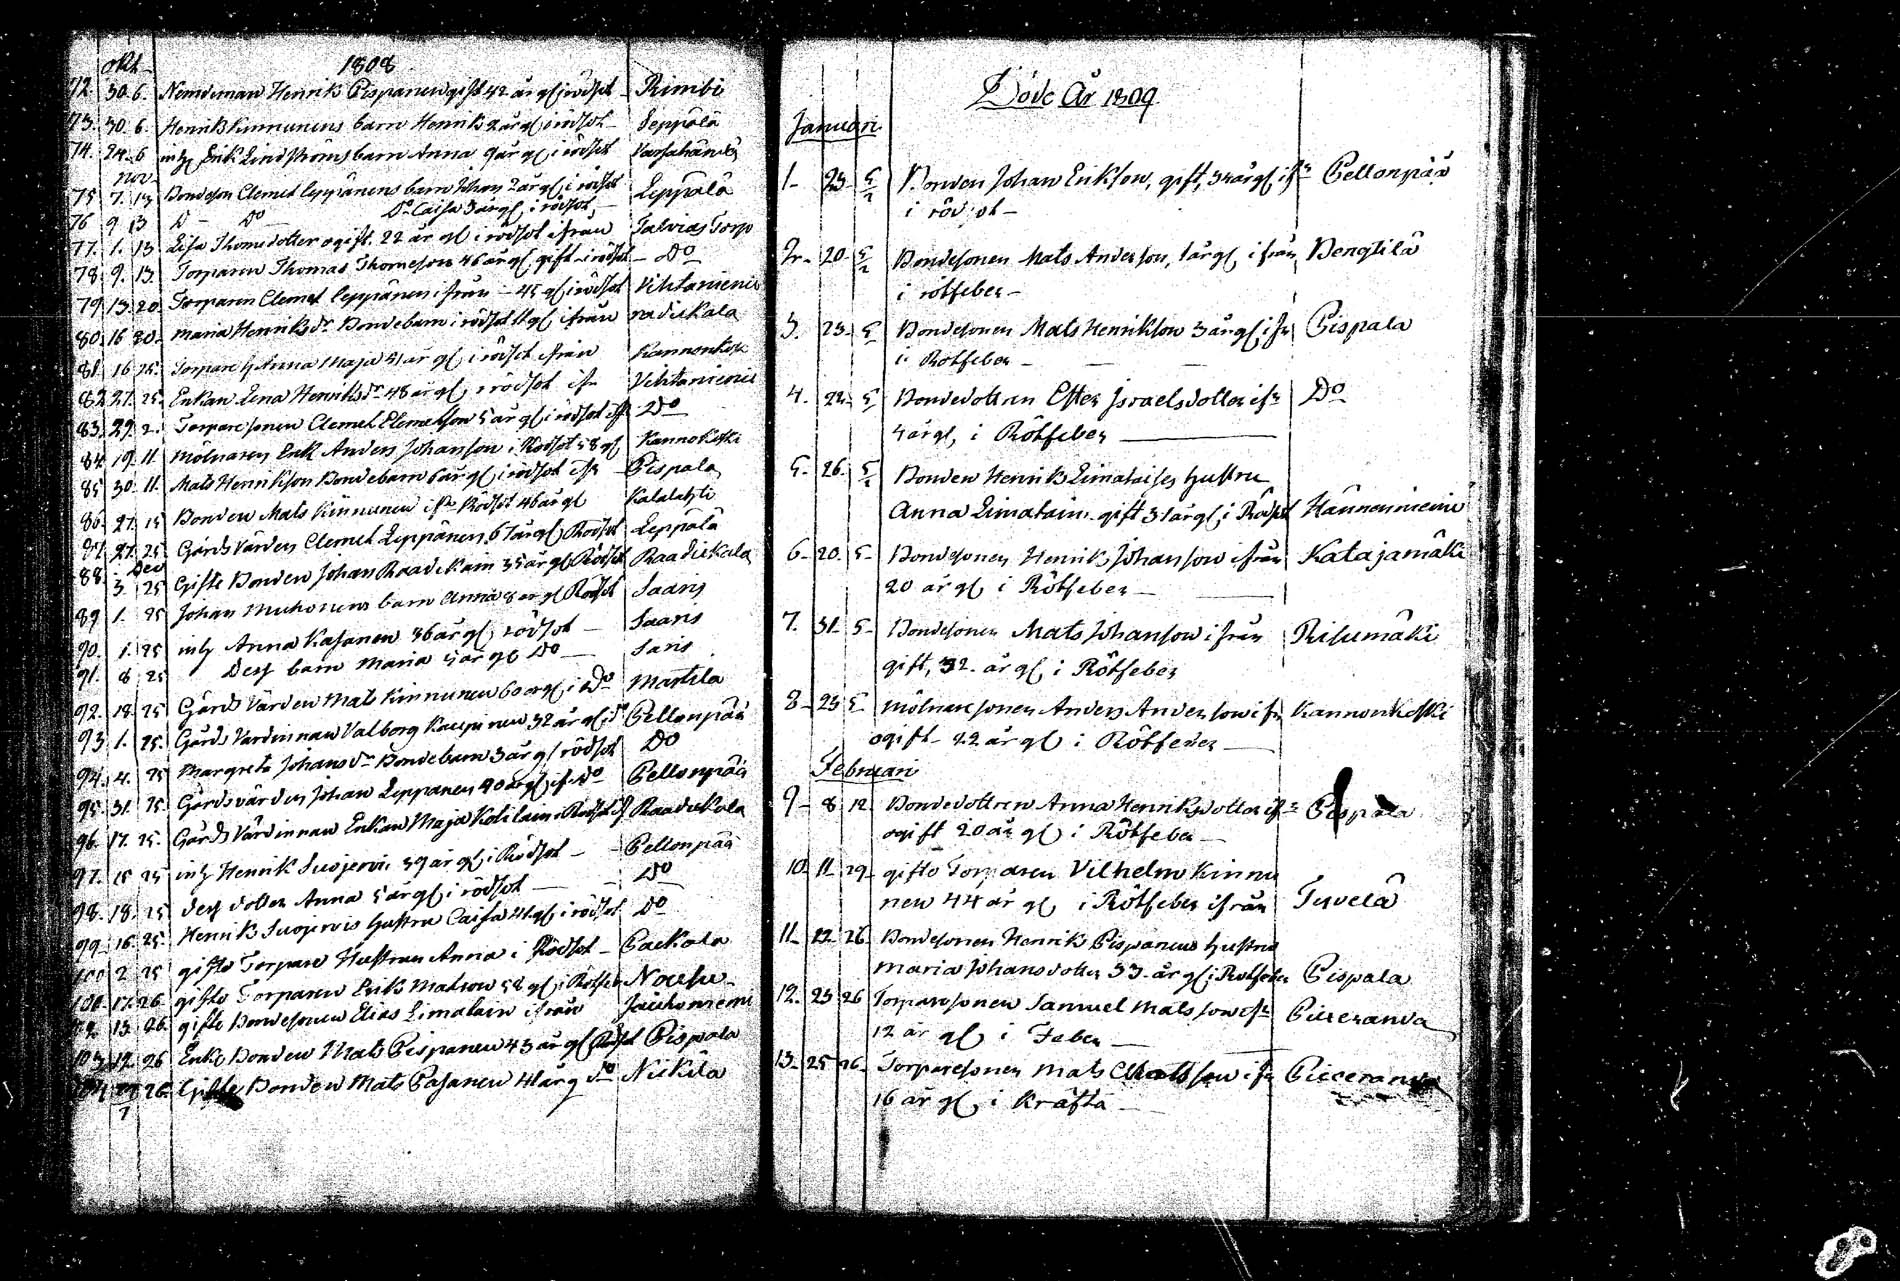 1808
okt
72. 30. 6. Nemdeman Henrik Pispanen gift 42 år gl i rödsot Rimbi
73. 30. 6. Henrik Kinnunens barn Henrik 2 år gl i rödsot Leppälä
74. 24. 6 inhs Erik Lindströms barn Anna 9 år gl i rödsot
nov
75 7. 13 Bondeson Clemet Leppänens barn Johan 2 år gl i rödsot Leppälä
76 9 13 D Do Do Caisa 3 år gl i rödsot
77. 1. 13. Lisa Thomsdotter ogift. 22 år gl i rödsot ifrån Talvias Torp
78. 9. 13. Torparen Thomas Thomeson 46 år gl gift i rödsot Do
79. 13. 20. Torparen Clemet Leppänen ifrån 45 gl i rödsot Vihtaniemi
80. 16 20. Maria Henriksdr Bondebarn i rödsot 11 gl ifrån radikala
81. 16 25. Torpare h Anna Maja 41 år gl i rödsot ifrån Kannonkoski
82. 27. 25. Enkan Lena Henriksdr 48 år gl i rödsot ifr Vihtaniemi
83. 29. 2. Torparesonen Clemet Clemetson 5 år gl i rödsot ifr Do
84. 19. 11. Mölnaren Enk Anders Johanson i Rödsot 58 gl Kannokoski
85. 30. 11. Mats Henrikson Bondebarn 6 år gl i rödsot ifr Pispala
86. 27. 15 Bonden Mats Kinnunen ifr Rödsot 46 år gl Kalalahti
87. 27. 25. Gårds Värden Clemet Leppänen 67 år gl Rödsot Leppälä
Dec
88. 3 25 Gifte Bonden Johan Raadikain 35 år gl Rödsot Raadikala
89 1. 25 Johan Muhonens barn Anna 8 år gl Rödsot Saaris
90. 1. 25 inhs Anna Kasanen 36 år gl rödsot Saaris
91. 8 25 Dess barn Maria 5 år gl Do Saris
92. 18. 25 Gårds Värden Mats Kinnunen 60 år gl i Do Martila
93 1. 25. Gårds Värdinnan Valborg Kaupinen 32 år gl i do Pellonpää
94. 4. 25 Margreta Johansdr Bondebarn 3 år gl rödsot Do
95. 31. 25. Gårdsvärden Johan Leppänen 40 år gl if Do Pellonpää
96. 17. 25. Gårds Värdinnan Enkan Maja Kotilain i Rödsot if Raadikala
97. 15 25 inhs Henrik Susjervi 39 år gl i Rödsot Pellonpää
98. 18. 25 dess dotter Anna 5 år gl i rödsot Do
99 16. 25. Henrik Susjervis hustru Caisa 41 gl i rödsot Do
100 2 25 gifte Torpare Hustrun Anna i Rödsot Packala
17. 26 gifte Torparen Erik Matson 58 gl i Rötfeb Nousu
13. 26. gifte Bondesonen Elias Limatain ifrån Jauhoniemi
103. 19. 26 Enkl Bonden Mats Pispanen 43 år gl Rödsot Pispala
26. Gifte Bonden Mats Pasanen 41 år g do Niskila
Döde År 1809
Januari
1- 23- 5/2 Bonden Johan Erikson, gift, 34 år gl ifr Pellonpää
i rödsot-
2- 20- 5/2 Bondesonen Mats Anderson, 1 år gl ifrån Bengtilä
i rötfeber-
3. 23- 5 Bondesonen Mats Henrikson 3 år gl ifr Pispala
i Rötfeber -
4. 22- 5 Bondedottren Ester Israelsdotter ifr Do
4 år gl, i Rötfeber
5- 26- 5/2 Bonden Henrik Limatains hustru
Anna Limatain gift 31 år gl i Rödsot Hännoinniemi
6- 20- 5- Bondesonen Henrik Johanson ifrån Katajamäki
20 år gl i Rötfeber-
7. 31- 5- Bondesonen Mats Johanson ifrån Risumäki
gift, 32. år gl i Rötfeber
8- 23 5- Mölnaresonen Anders Anderson ifr Kannonkoski
ogift- 22 år gl i Rötfeber
Februari
9- 8 12 Bondedottren Anna Henriksdotter ifr Pispala
ogift 20 år gl i Rötfeber
10- 11- 29- gifte Torparen Vilhelm Kinnu
nen 44 år gl i Rötfeber ifrån Tervelä
11- 22 26 Bondesonen Henrik Pispanens hustru
Maria Johansdotter 33- år gl i Rötfeber Pispala
12. 23 26 Torparesonen Samuel Matsson ifr Piiceranda
12 år gl i Feber
13- 25 26- Torparesonen Mats Matsson ifr Piiceranda
16 år gl i Kräfta